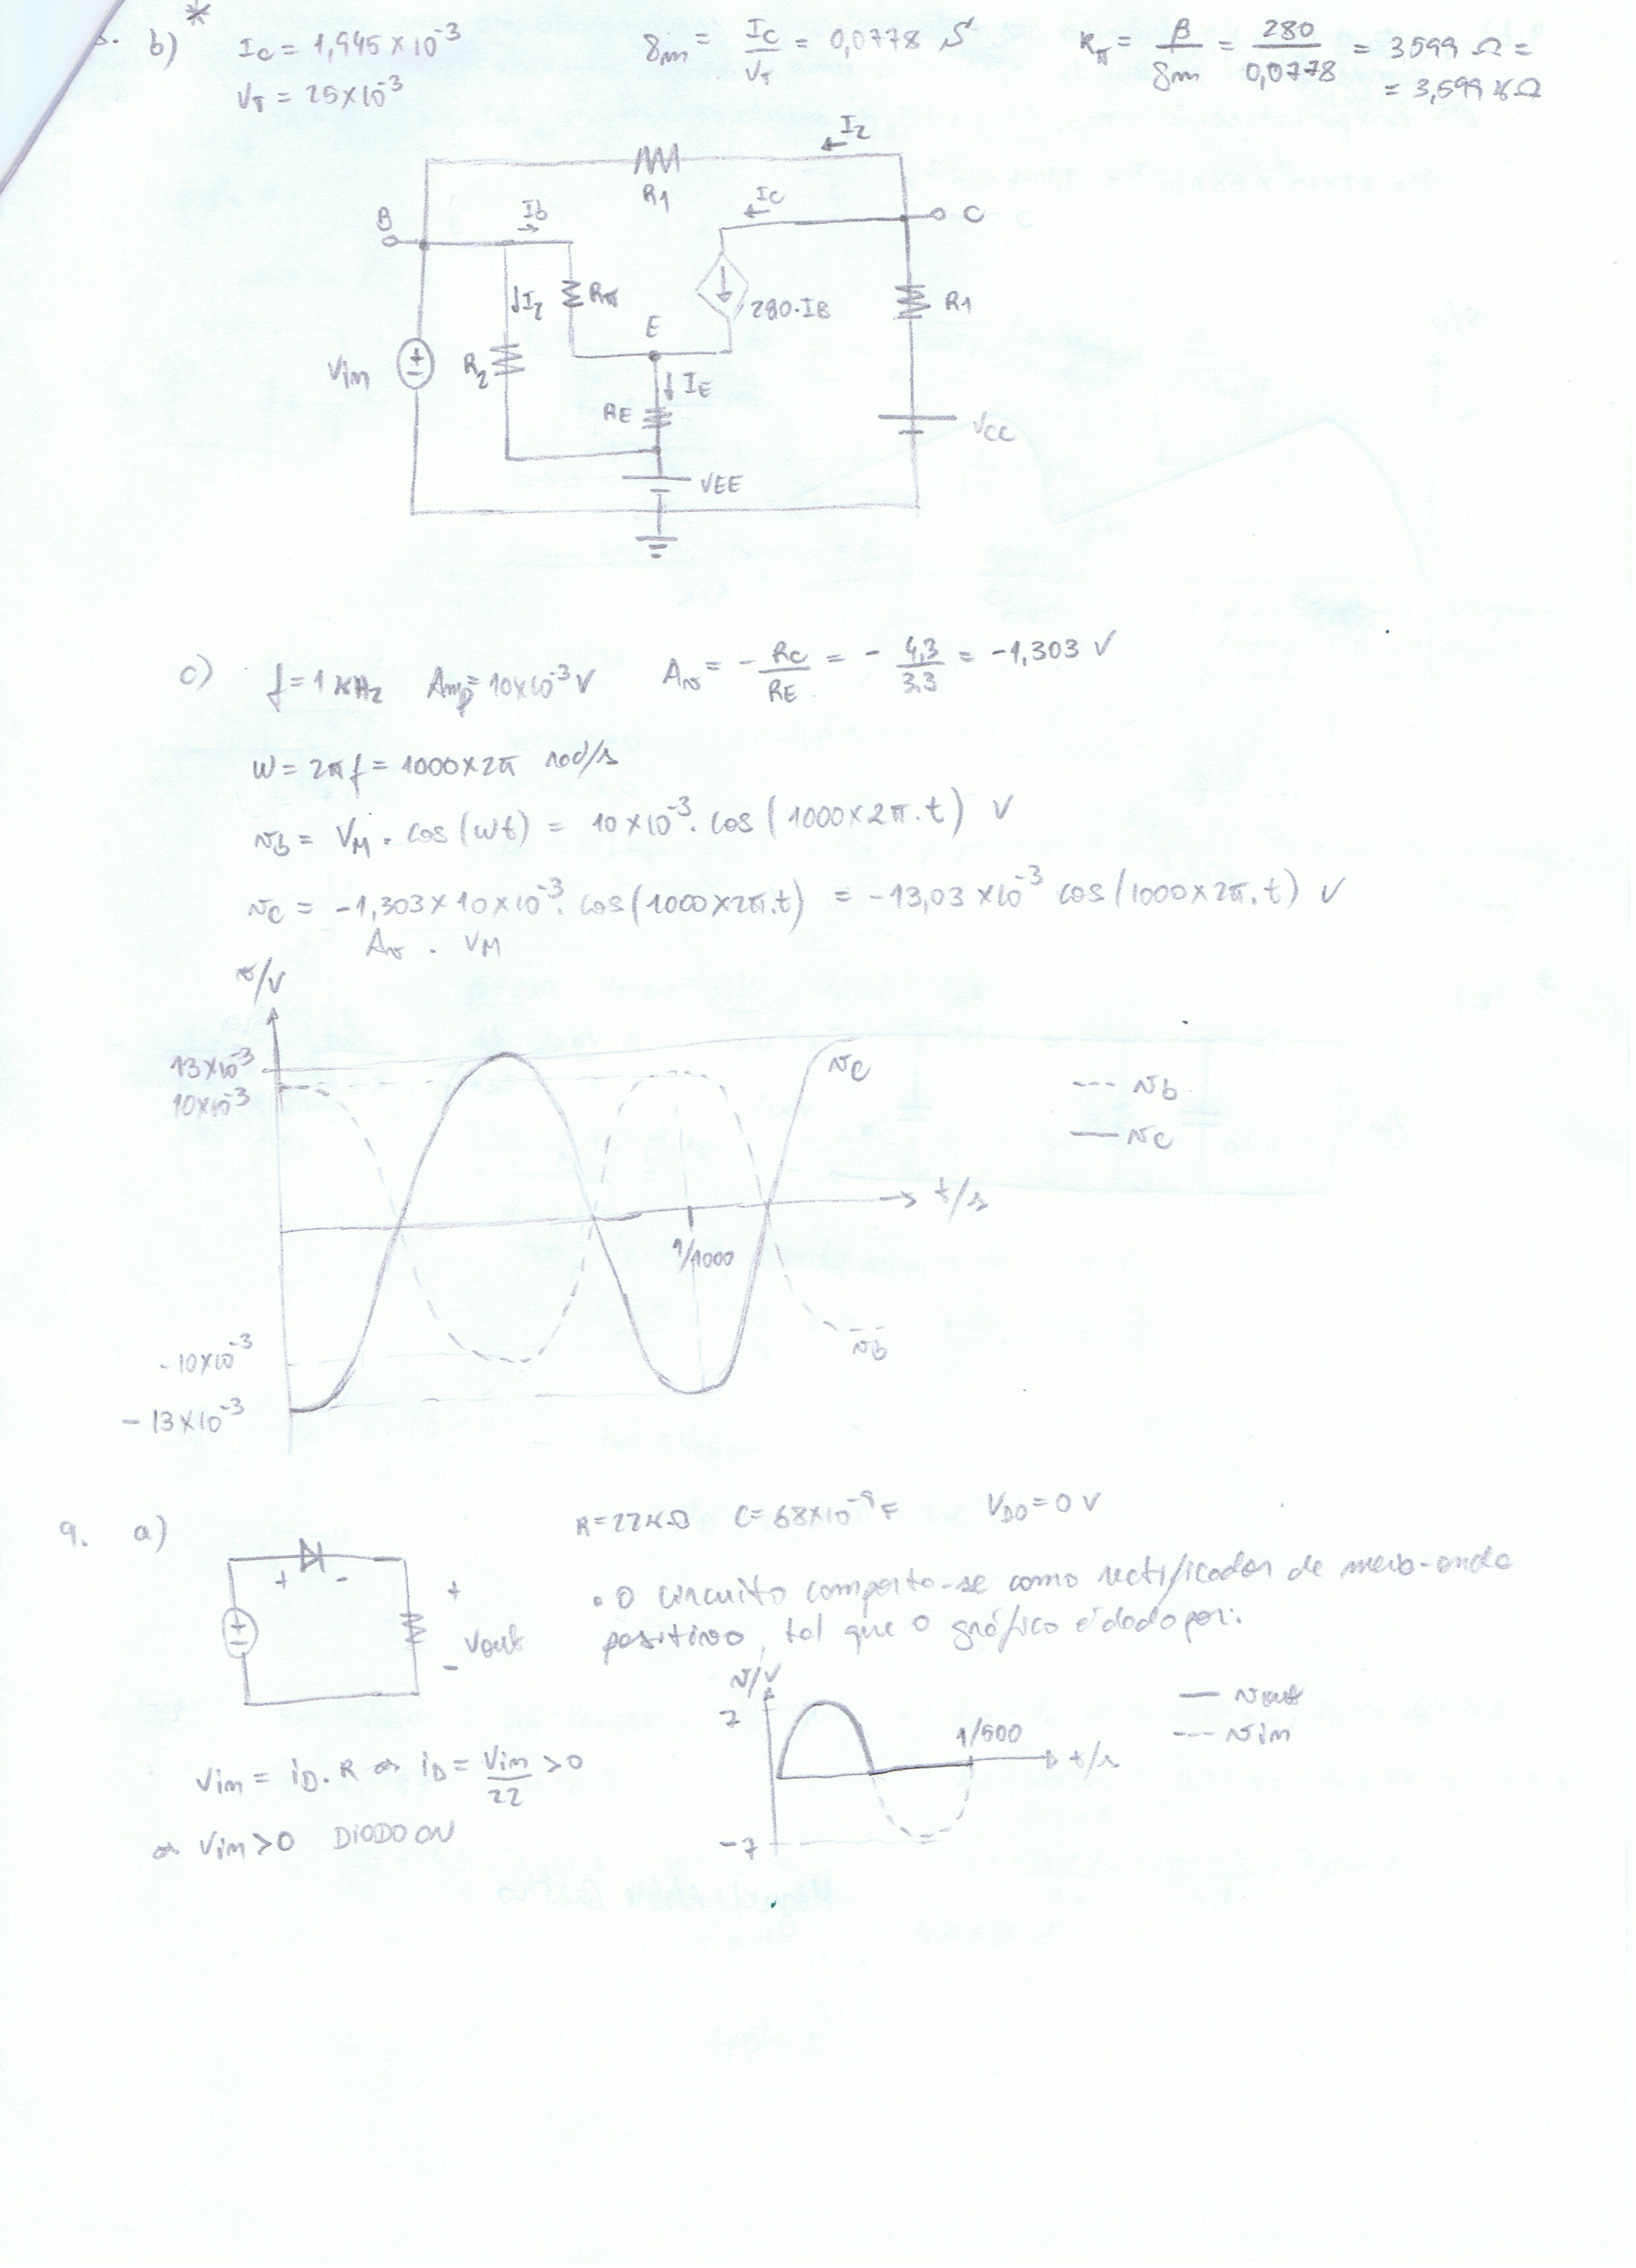 b) *
Ic = 1,945 × 10⁻³
V_T = 25×10⁻³
gm = Ic/V_T = 0,0778 S
Rπ = β/gm = 280/0,0778 = 3599 Ω =
= 3,599 kΩ
I2
R1
B
Ib
Ic
C
I2
Rπ
280.IB
R1
E
Vin
R2
IE
RE
VCC
VEE
c) f = 1 kHz Amp = 10×10⁻³ V Av = - Rc/RE = - 4,3/3.3 = -1,303 V
W = 2πf = 1000×2π rad/s
vb = VM . cos(wt) = 10×10⁻³. cos(1000×2π.t) V
vc = -1,303×10×10⁻³. cos(1000×2π.t) = -13,03×10⁻³ cos(1000×2π.t) V
Av . VM
v/V
13×10⁻³
10×10⁻³
vc
--- vb
— vc
t/s
1/1000
-10×10⁻³
vb
-13×10⁻³
9. a)
R=22kΩ C=68×10⁻⁹ F VD0=0V
+ -
+
Vout
-
• O circuito comporta-se como rectificador de meia-onda
positivo, tal que o gráfico é dado por:
v/V
7
1/500
t/s
-7
— vout
--- vin
Vin = iD.R ⇔ iD = Vin/22 >0
⇔ Vin>0 DIODO ON